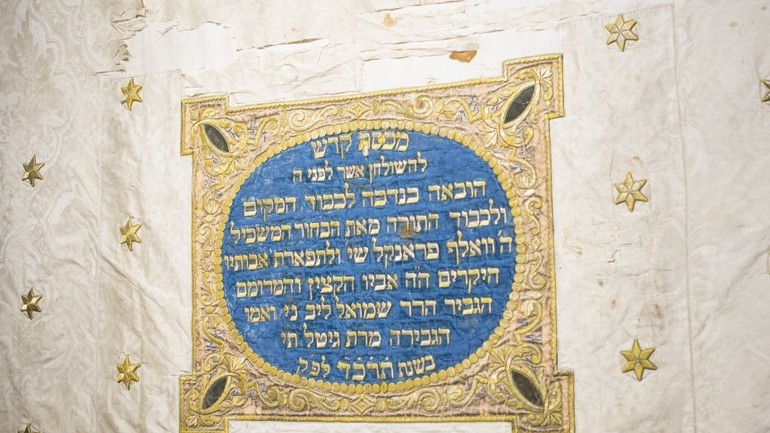 מכסה קדש
להשולחן אשר לפני ה
הובאד בנדבה לכבוד המקום
ולכבוד התורה מאת הבחור המשכיל
ה' וואלף פראנקל שי' ולתפארת אבותיו
היקרים ה"ה אביו הקצין והמרומם
הגביר הרר שמואל ליב ני' ואמו
הגבירה מרת גיטל תי'
בשנת תרכד לפק